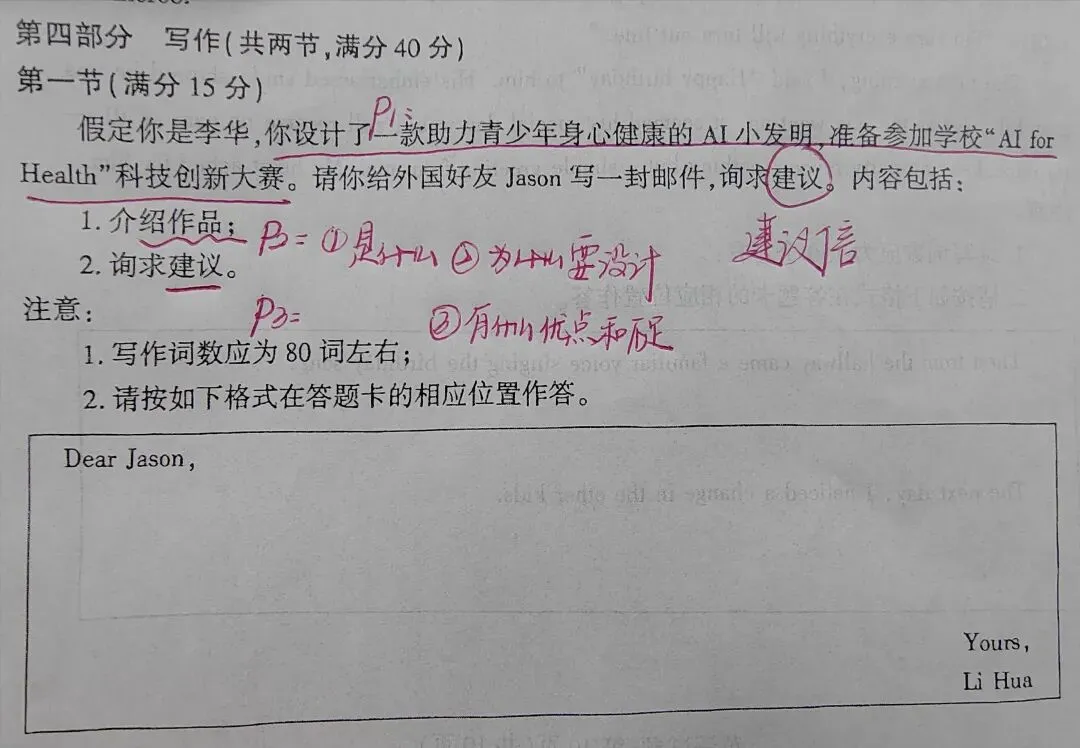 第四部分 写作(共两节,满分 40 分)
第一节(满分 15 分)
P1:
假定你是李华,你设计了一款助力青少年身心健康的 AI 小发明,准备参加学校“AI for
Health”科技创新大赛。请你给外国好友 Jason 写一封邮件,询求建议。内容包括:
1. 介绍作品;
P2= ①是什么 ②为什么要设计
建议信
2. 询求建议。
注意:
P3=
③有什么优点和不足
1. 写作词数应为 80 词左右;
2. 请按如下格式在答题卡的相应位置作答。
Dear Jason,
Yours,
Li Hua